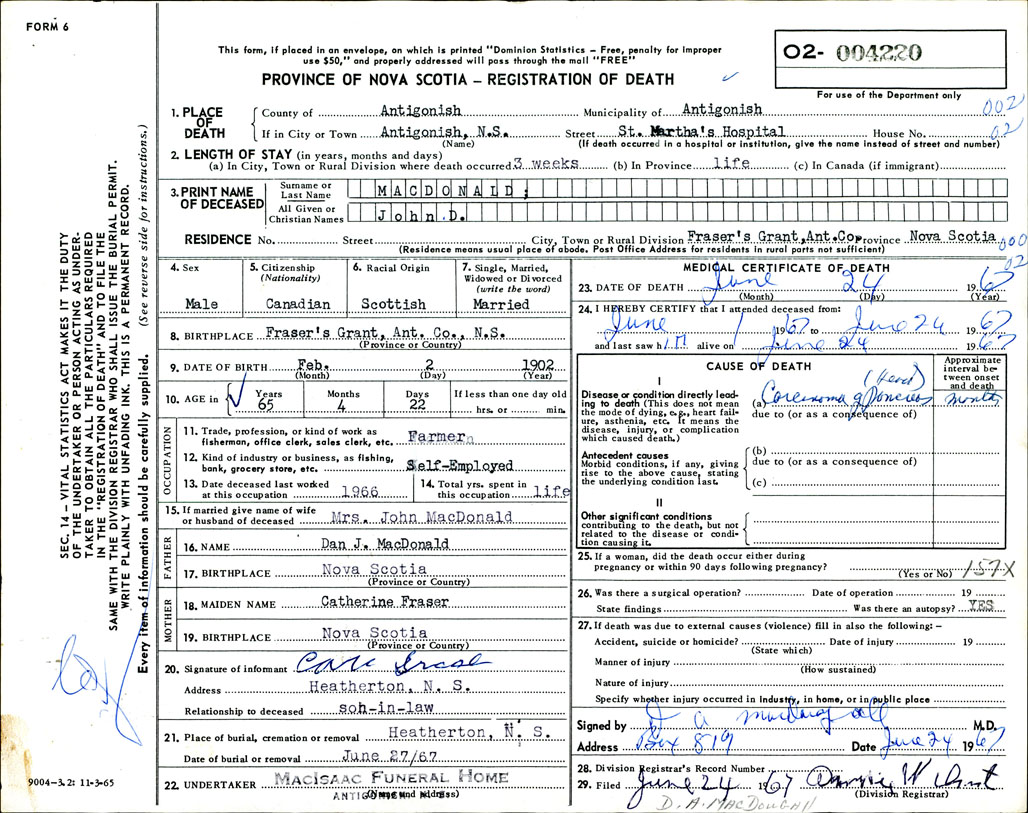 FORM 6
This form, if placed in an envelope, on which is printed "Dominion Statistics – Free, penalty for improper
use $50," and properly addressed will pass through the mail "FREE"
PROVINCE OF NOVA SCOTIA – REGISTRATION OF DEATH
O2- 004220
For use of the Department only
1. PLACE OF DEATH
County of Antigonish Municipality of Antigonish 002
If in City or Town Antigonish, N.S. Street St. Martha's Hospital House No. 02
(Name) (If death occurred in a hospital or institution, give the name instead of street and number)
2. LENGTH OF STAY (in years, months and days)
(a) In City, Town or Rural Division where death occurred 3 weeks (b) In Province life (c) In Canada (if immigrant)
3. PRINT NAME OF DECEASED
Surname or Last Name MACDONALD,
All Given or Christian Names John D.
RESIDENCE No. Street City, Town or Rural Division Fraser's Grant, Ant.Co Province Nova Scotia 000
(Residence means usual place of abode. Post Office Address for residents in rural parts not sufficient) 02
4. Sex Male
5. Citizenship (Nationality) Canadian
6. Racial Origin Scottish
7. Single, Married, Widowed or Divorced (write the word) Married
8. BIRTHPLACE Fraser's Grant, Ant. Co., N.S.
(Province or Country)
9. DATE OF BIRTH Feb. 2 1902
(Month) (Day) (Year)
10. AGE in Years 65 Months 4 Days 22 If less than one day old hrs. or min.
OCCUPATION
11. Trade, profession, or kind of work as fisherman, office clerk, sales clerk, etc. Farmer
12. Kind of industry or business, as fishing, bank, grocery store, etc. Self-Employed
13. Date deceased last worked at this occupation 1966
14. Total yrs. spent in this occupation life
15. If married give name of wife or husband of deceased Mrs. John MacDonald
FATHER
16. NAME Dan J. MacDonald
17. BIRTHPLACE Nova Scotia
(Province or Country)
MOTHER
18. MAIDEN NAME Catherine Fraser
19. BIRTHPLACE Nova Scotia
(Province or Country)
20. Signature of informant
Address Heatherton, N. S.
Relationship to deceased soh-in-law
21. Place of burial, cremation or removal Heatherton, N. S.
Date of burial or removal June 27/67
22. UNDERTAKER MACISAAC FUNERAL HOME
(Name and Address)
MEDICAL CERTIFICATE OF DEATH 02
23. DATE OF DEATH June 24 1967
(Month) (Day) (Year)
24. I HEREBY CERTIFY that I attended deceased from:
June 1 1967 to June 24 1967
and last saw him alive on June 24 1967
CAUSE OF DEATH
Approximate interval between onset and death
I
Disease or condition directly leading to death (This does not mean the mode of dying, e.g., heart failure, asthenia, etc. It means the disease, injury, or complication which caused death.)
(Head)
(a) Carcinoma of Pancreas months
due to (or as a consequence of)
Antecedent causes
Morbid conditions, if any, giving rise to the above cause, stating the underlying condition last.
(b)
due to (or as a consequence of)
(c)
II
Other significant conditions
contributing to the death, but not related to the disease or condition causing it.
25. If a woman, did the death occur either during
pregnancy or within 90 days following pregnancy?
(Yes or No) 157X
26. Was there a surgical operation? Date of operation 19
State findings Was there an autopsy? YES
27. If death was due to external causes (violence) fill in also the following: –
Accident, suicide or homicide? Date of injury 19
(State which)
Manner of injury
(How sustained)
Nature of injury
Specify whether injury occurred in Industry, in home, or in public place
Signed by M.D.
Address Box 819 Date June 24 1967
28. Division Registrar's Record Number
29. Filed June 24 1967
(Division Registrar)
D. A. MACDOUGALL
SEC. 14 – VITAL STATISTICS ACT MAKES IT THE DUTY
OF THE UNDERTAKER OR PERSON ACTING AS UNDER-
TAKER TO OBTAIN ALL THE PARTICULARS REQUIRED
IN THE "REGISTRATION OF DEATH" AND TO FILE THE
SAME WITH THE DIVISION REGISTRAR WHO SHALL ISSUE THE BURIAL PERMIT.
WRITE PLAINLY WITH UNFADING INK. THIS IS A PERMANENT RECORD.
Every item of information should be carefully supplied. (See reverse side for instructions.)
9004-3.2: 11-3-65